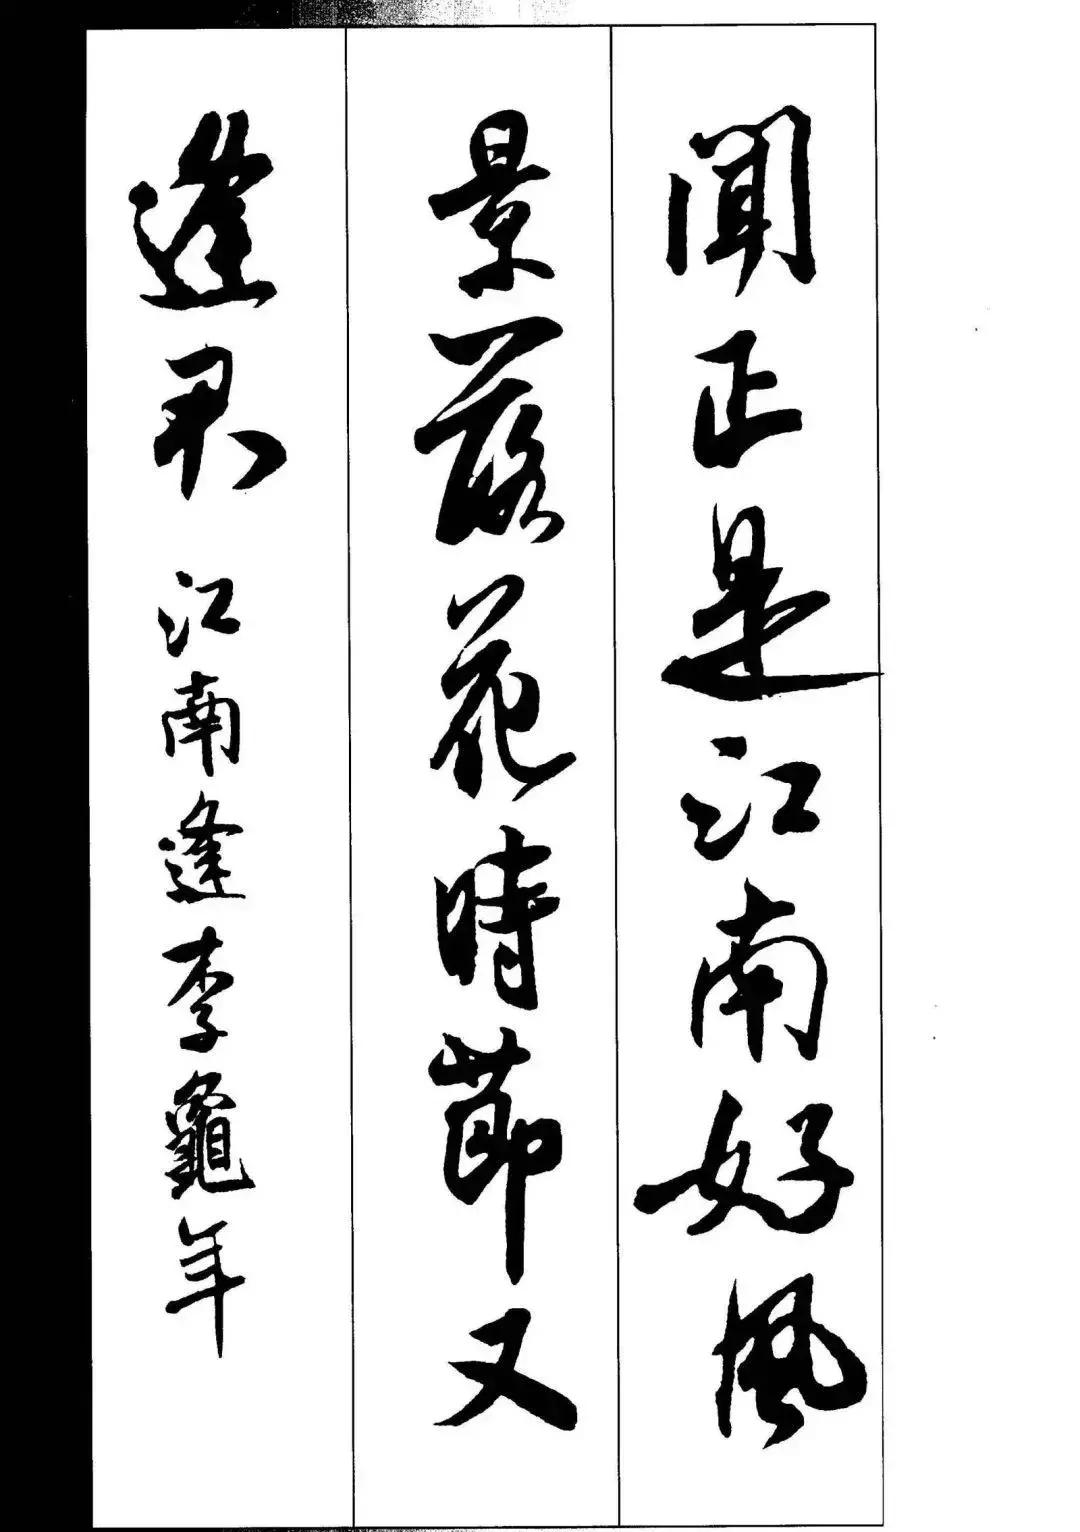 聞正是江南好風
景落花時節又
逢君 江南逢李龜年